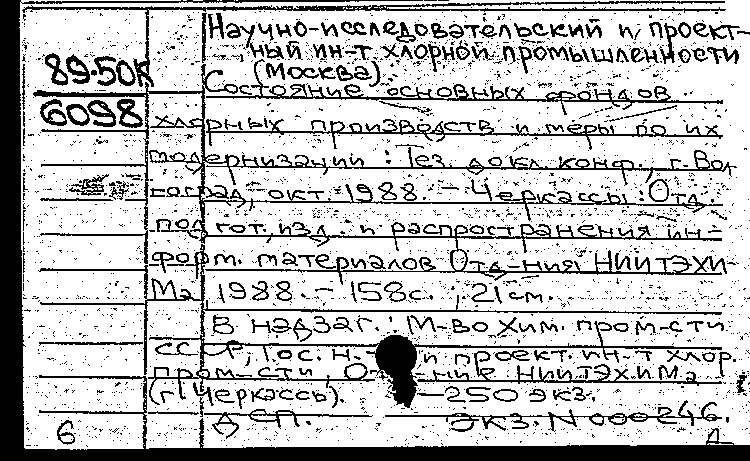 Научно-исследовательский и проект-
ный ин-т хлорной промышленности
89-50К
(Москва).
Состояние основных фондов
6098
хлорных производств и меры по их
модернизации : Тез. докл. конф., г. Вол
гоград, окт. 1988. - Черкассы : Отд.
подгот., изд. и распространения ин-
форм. материалов Отд-ния НИИТЭХИ-
Ма, 1988. - 158с. ; 21см.
В надзаг. : М-во хим. пром-сти
СССР, Гос. н. и проект. ин-т хлор.
пром-сти, НИИТЭХИМа
(г. Черкассы). - 250 экз.
ДСП. Экз. N 000246.
6
Д